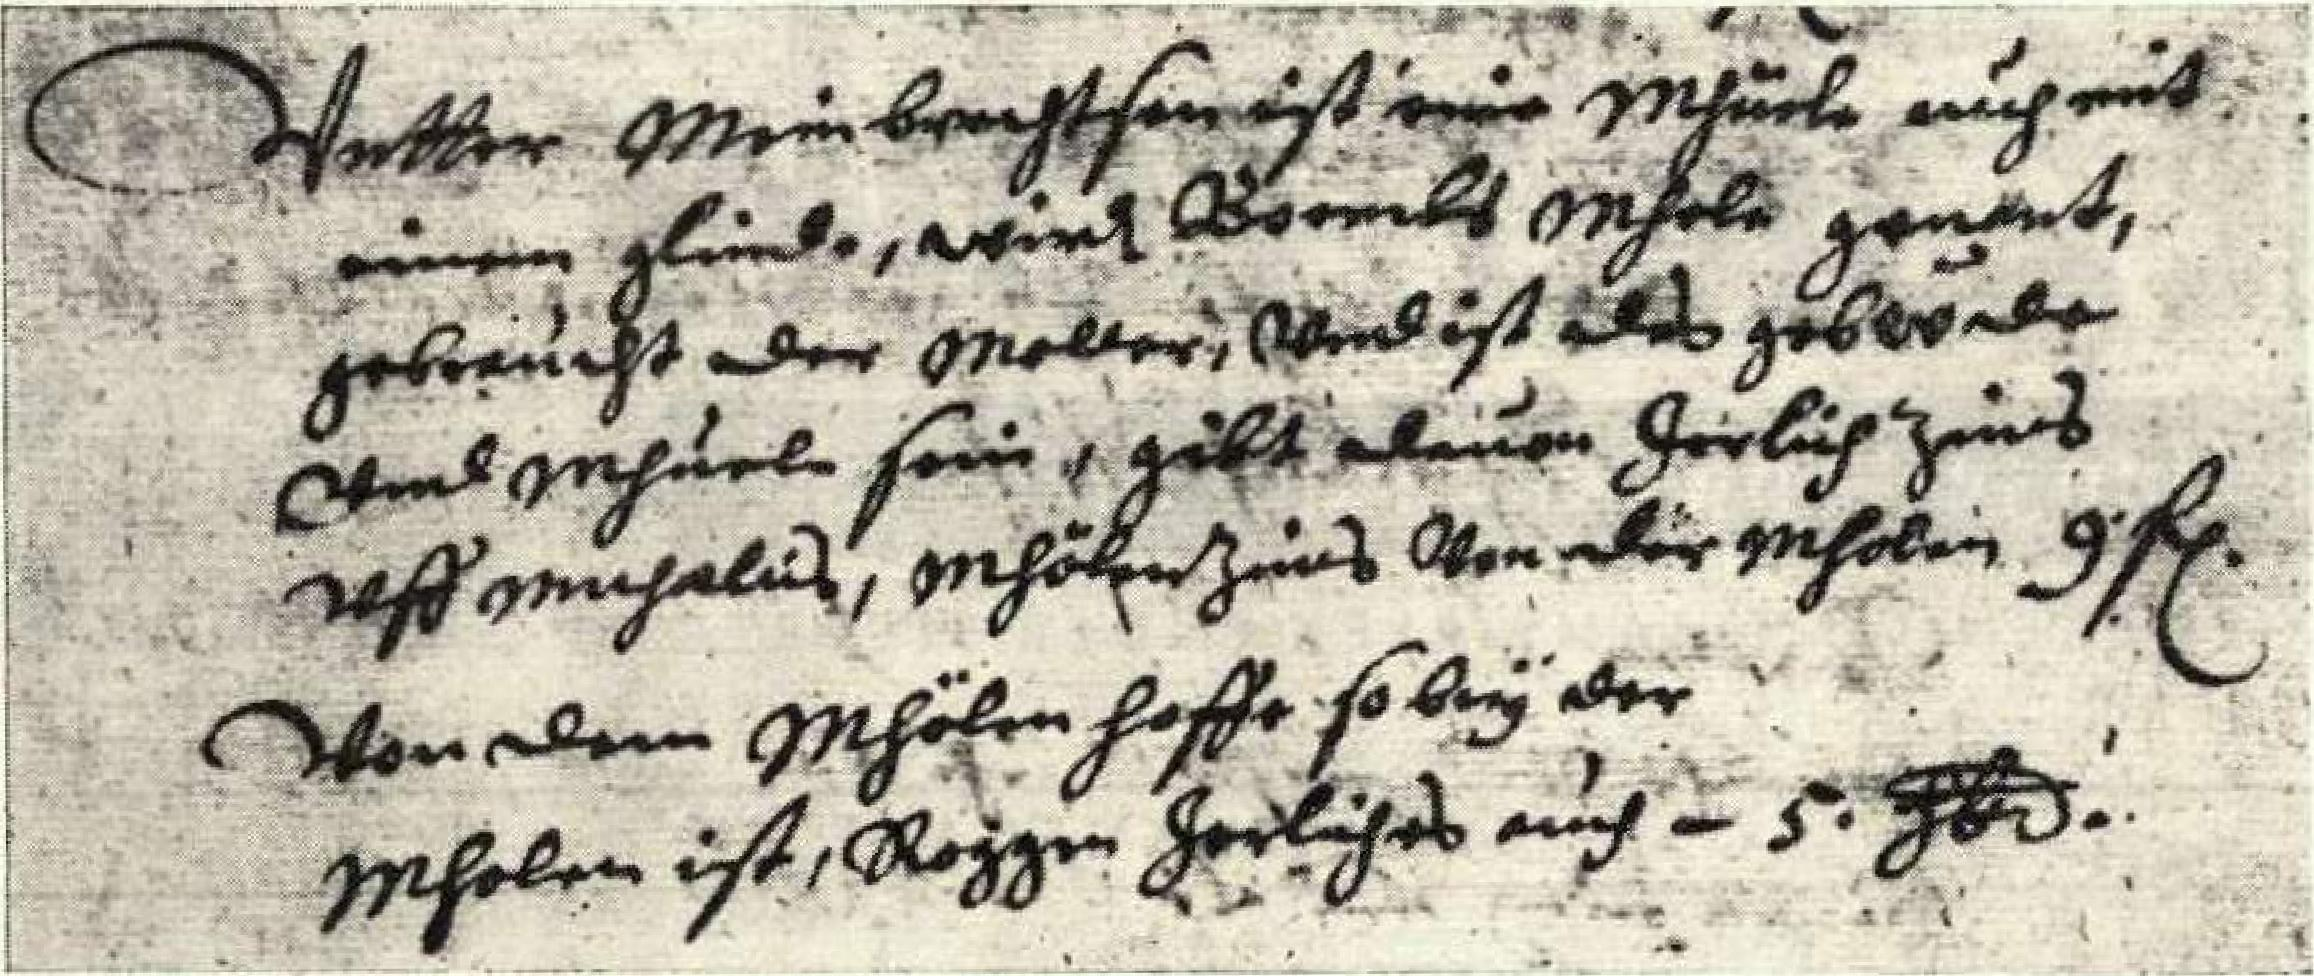 Vntter Meinbrechtsen ist eine Mhüele auch mit
einem glinde, wird Bornels Mhole genant,
gebraucht der Molner, Vnd ist das gebewde
Vnd Mhüele sein, gibt dauon Jerlich Zeins
Vff Michelis, Mhölen Zeins Von der Mholen 9
Von dem Mhölen hoffe so beÿ der
Mholen ist, Roggen Jerliches auch – 5.